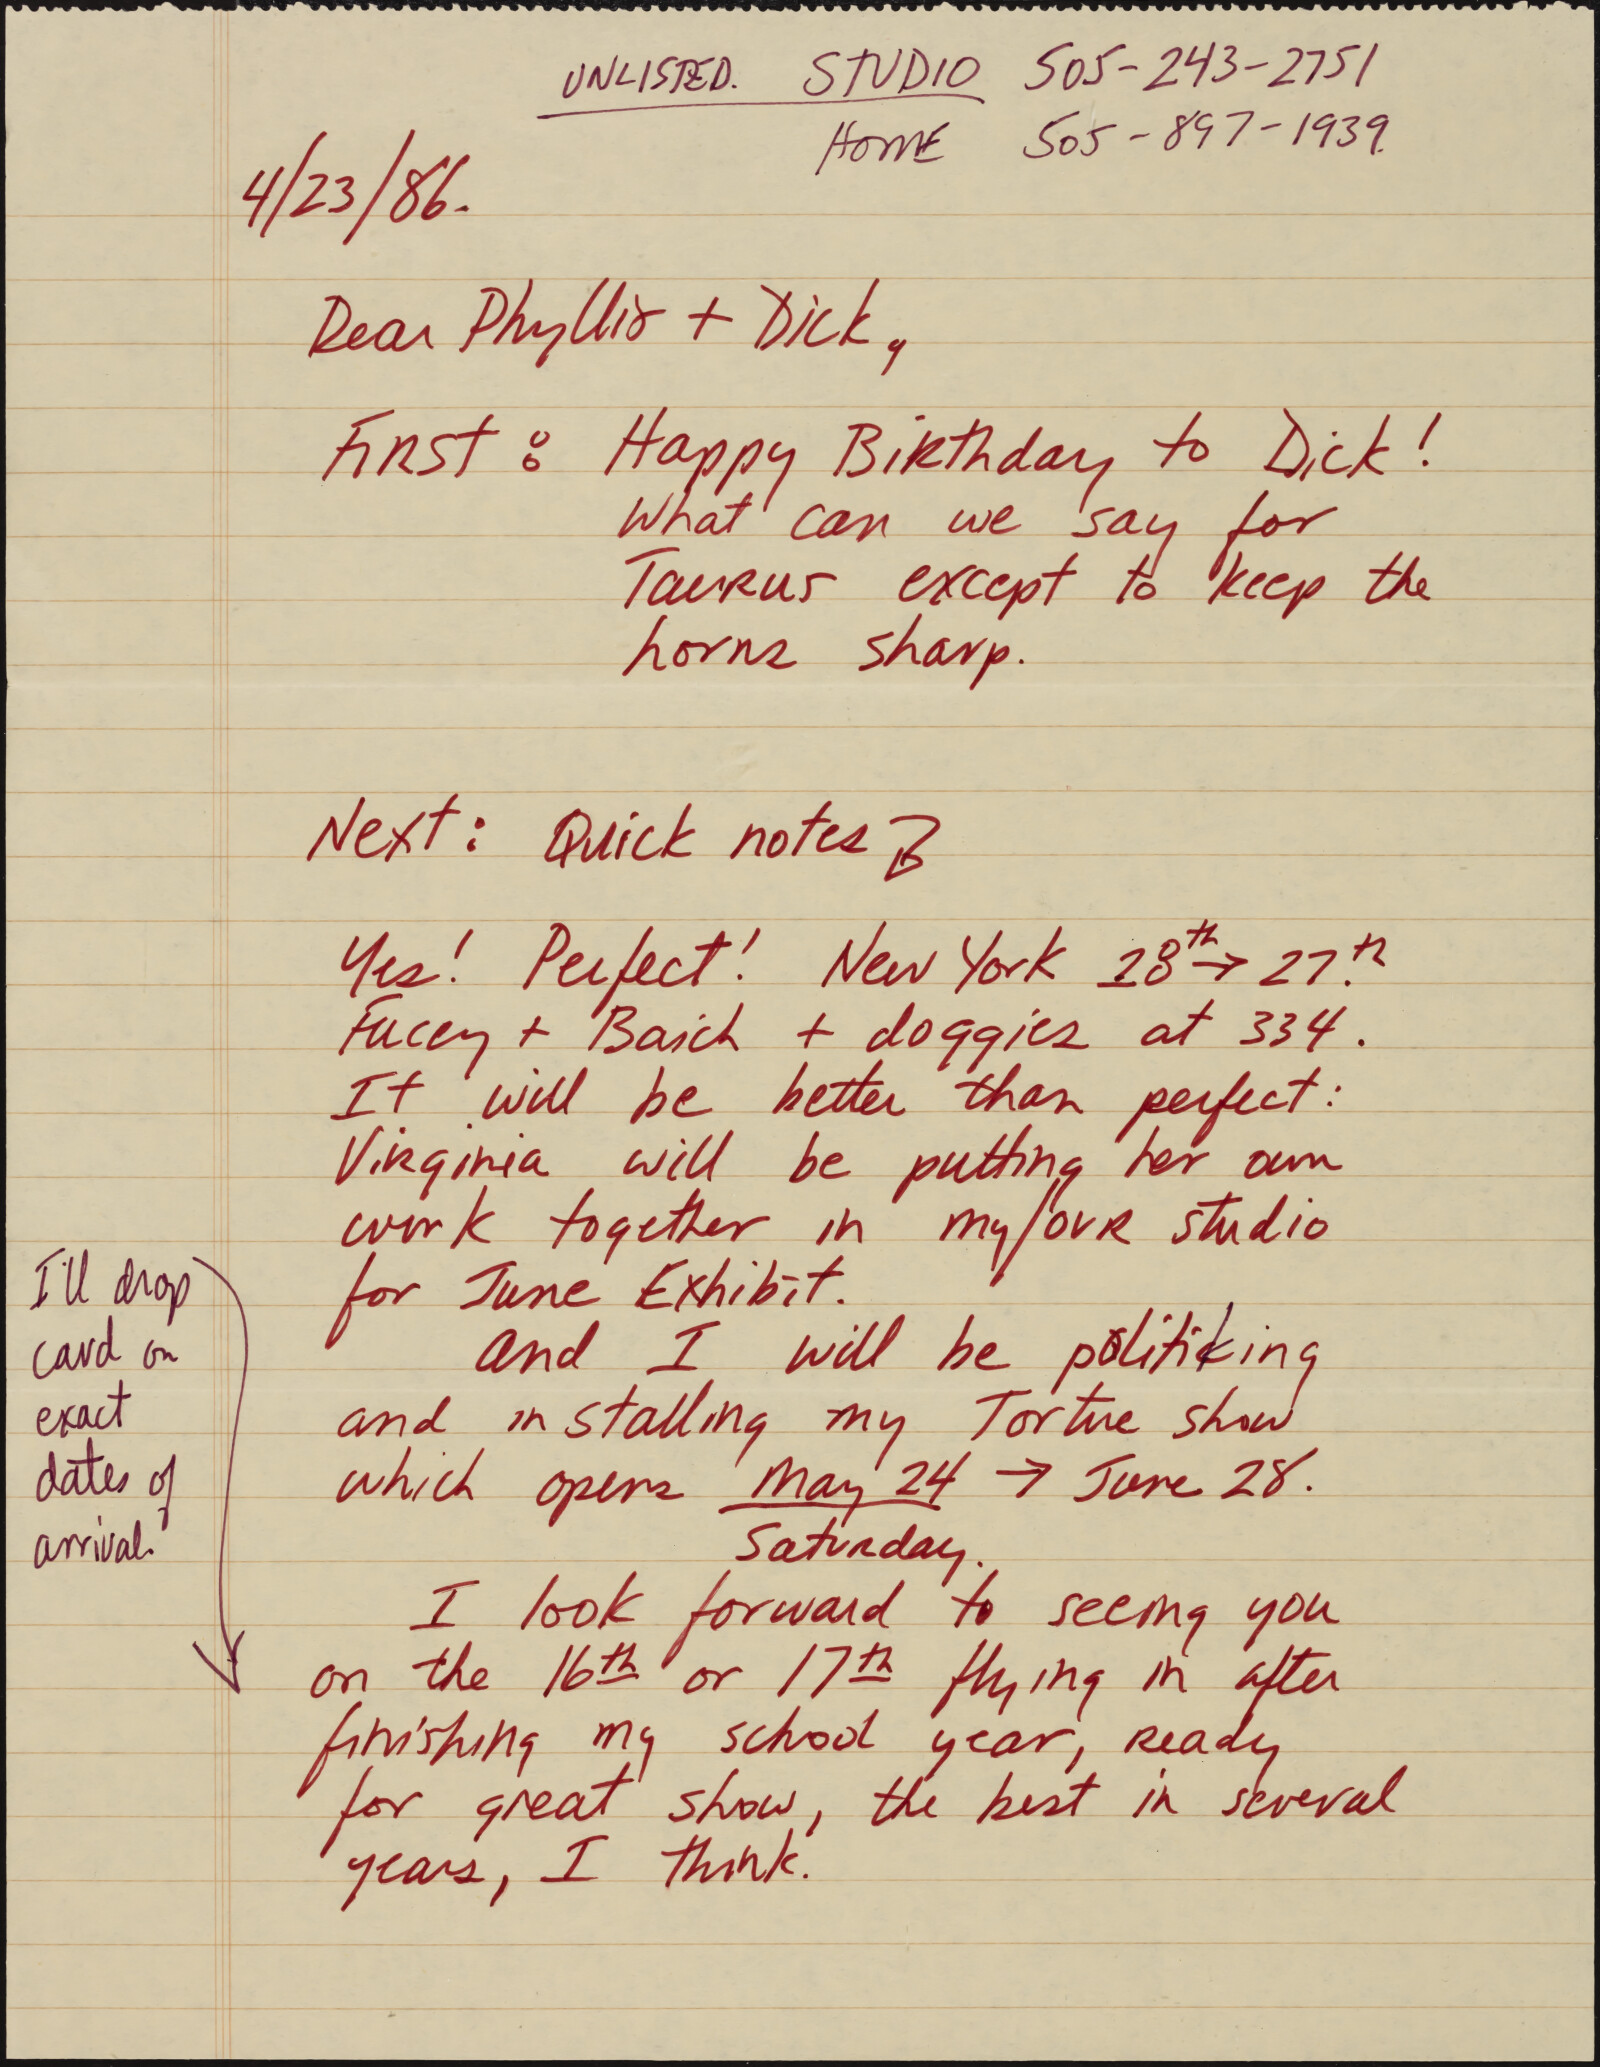 UNLISTED. STUDIO 505-243-2751
HOME 505-897-1939.
4/23/86.
Dear Phyllis + Dick,
First: Happy Birthday to Dick!
What can we say for
Taurus except to keep the
horns sharp.
Next: Quick notes
Yes! Perfect! New York 18th → 27th.
Facey + Baich + doggies at 334.
It will be better than perfect:
Virginia will be putting her own
work together in my/our studio
for June Exhibit.
And I will be politiking
and installing my Tortue show
which opens May 24 → June 28.
Saturday.
I'll drop
card on
exact
dates of
arrival.
I look forward to seeing you
on the 16th or 17th flying in after
finishing my school year, ready
for great show, the best in several
years, I think.